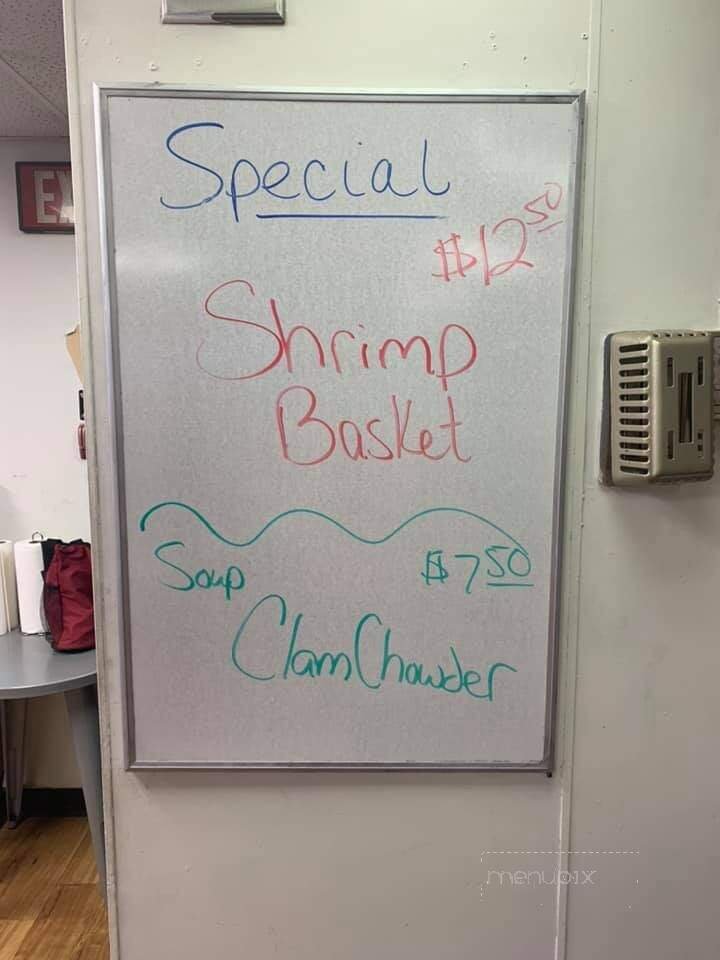 Special
$12 50
Shrimp
Basket
Soup $7 50
Clam Chowder
menupix